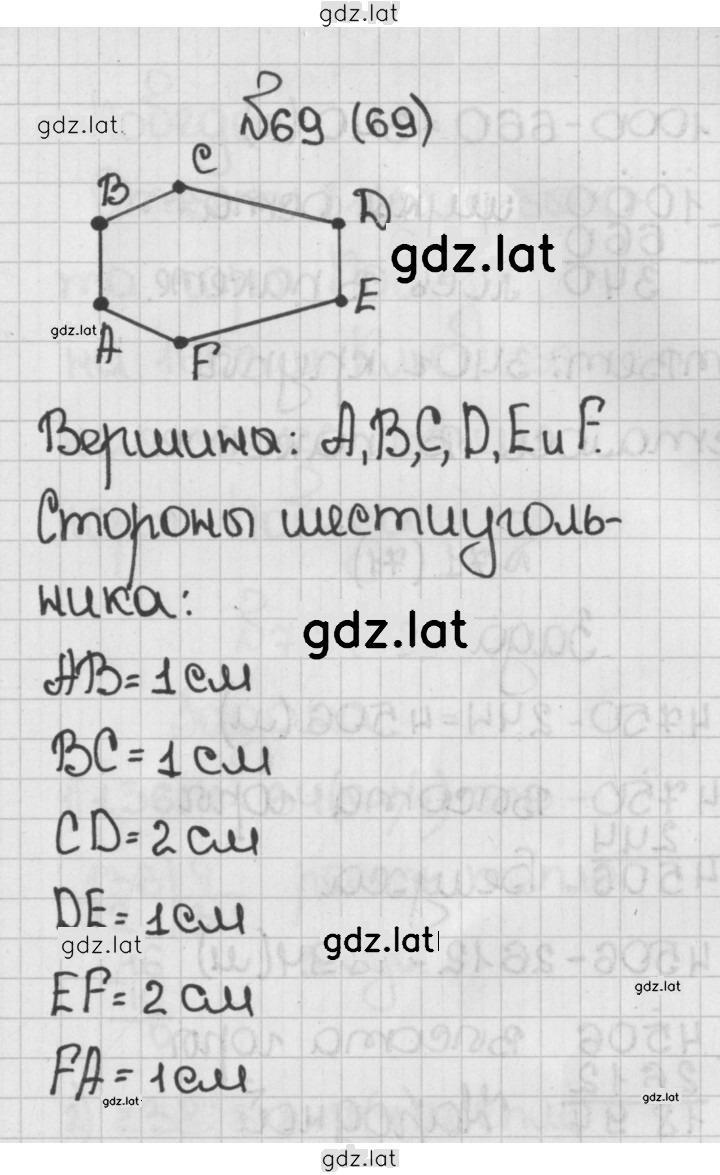 gdz.lat
gdz.lat
№69 (69)
C
B
D
gdz.lat
E
gdz.lat
A
F
Вершины: A, B, C, D, E и F.
Стороны шестиуголь-
ника:
gdz.lat
AB = 1 см
BC = 1 см
CD = 2 см
DE = 1 см
gdz.lat
gdz.lat
EF = 2 см
gdz.lat
FA = 1 см
gdz.lat
gdz.lat
gdz.lat